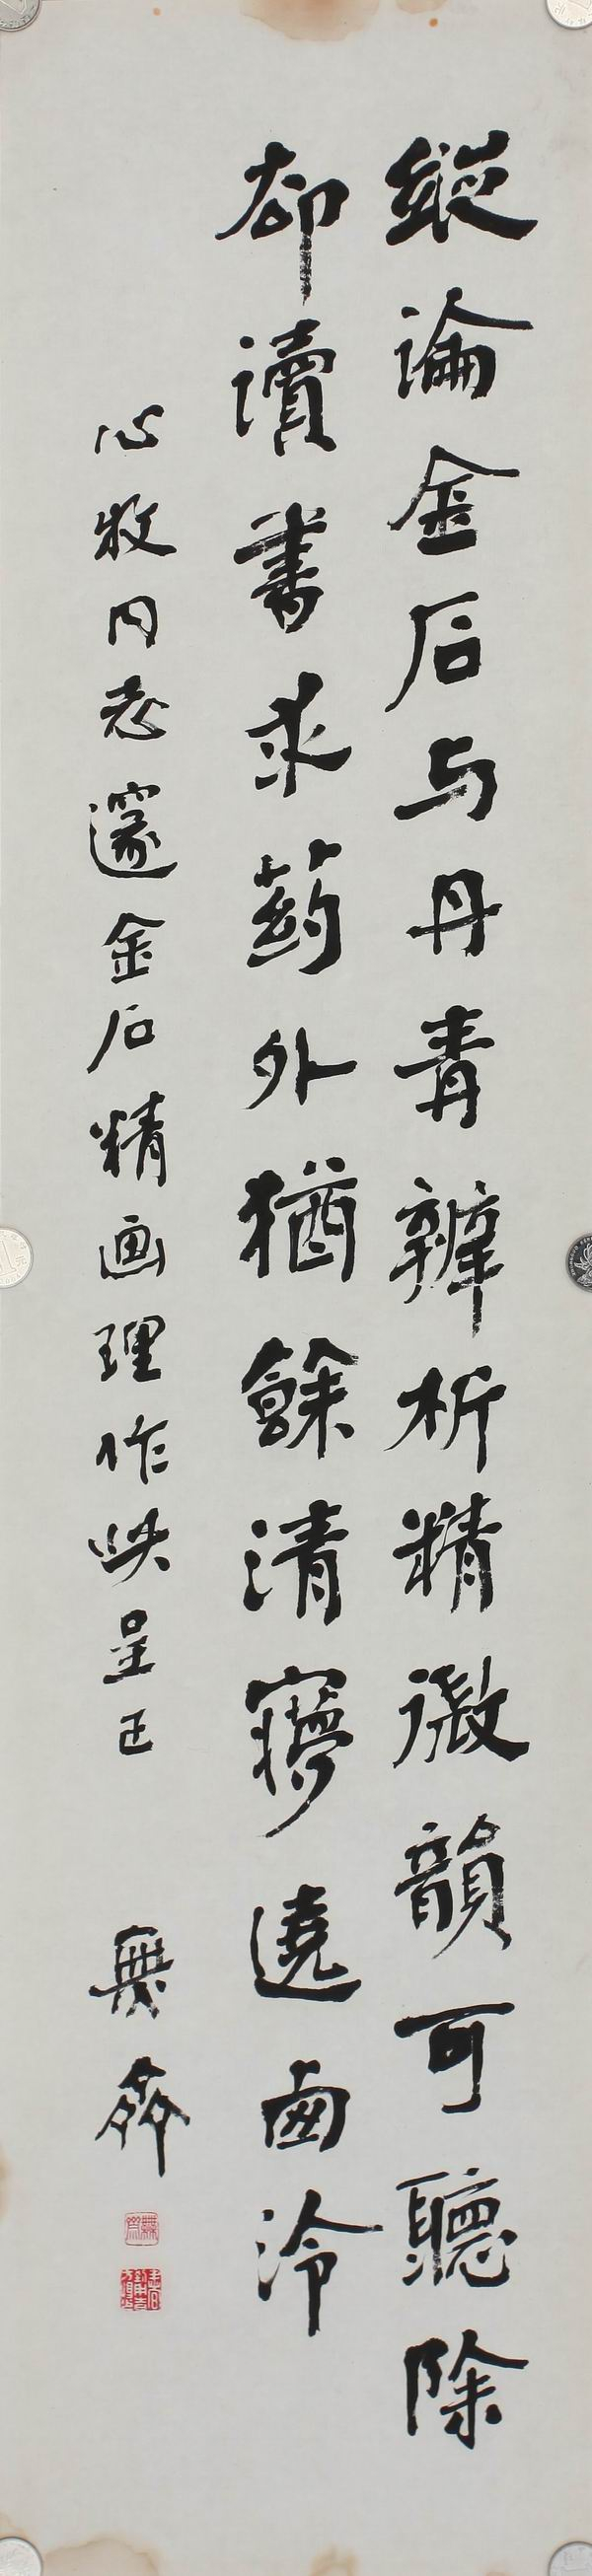 縱論金石与丹青辨析精微韻可聽除
却讀書求药外猶餘清寢遶西泠
心牧同志邃金石精画理作此呈正 無齋